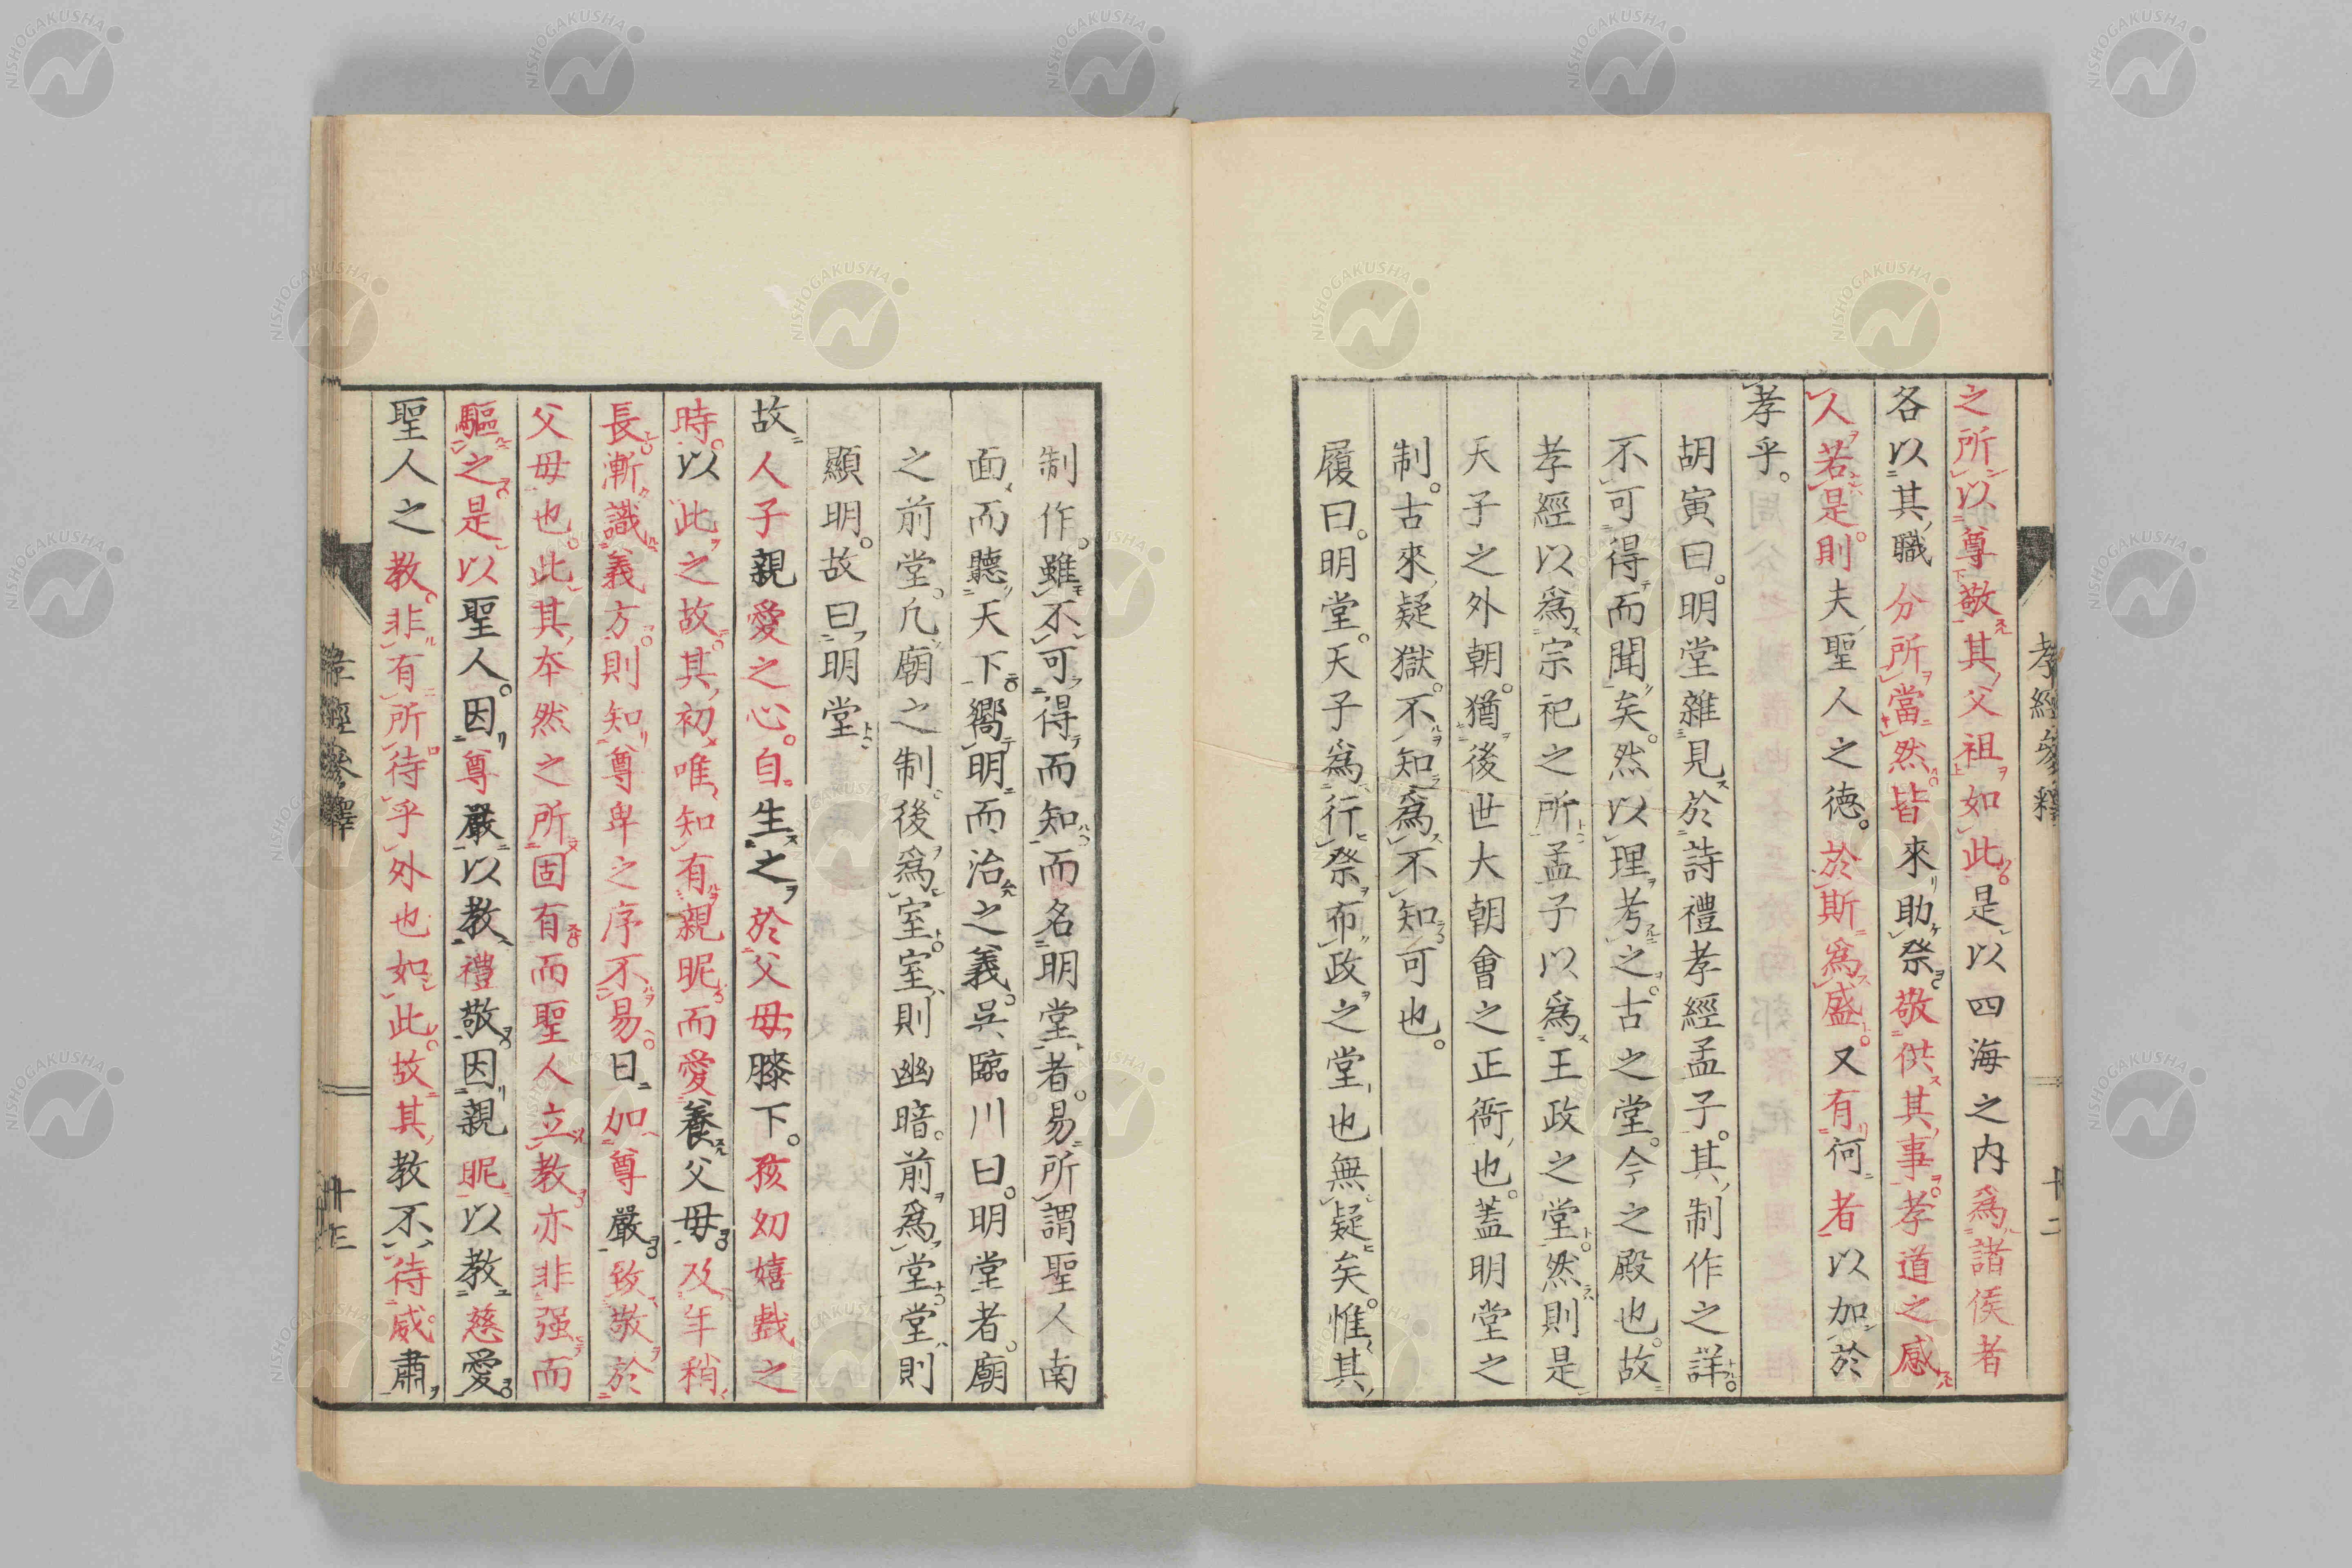 之所以尊敬其父祖如此是以四海之内爲諸侯者
各以其職分所當然皆來助祭敬供其事孝道之感
人若是則夫聖人之德於斯爲盛又有何者以加於
孝乎
胡寅曰明堂雜見於詩禮孝經孟子其制作之詳
不可得而聞矣然以理考之古之堂今之殿也故
孝經以爲宗祀之所孟子以爲王政之堂然則是
天子之外朝猶後世大朝會之正衙也蓋明堂之
制古來疑獄不知爲不知可也
履曰明堂天子爲行祭布政之堂也無疑矣惟其
孝經參釋
十二
制作雖不可得而知而名明堂者易所謂聖人南
面而聽天下嚮明而治之義吳臨川曰明堂者廟
之前堂凡廟之制後爲室室則幽暗前爲堂堂則
顯明故曰明堂
故人子親愛之心自生之於父母膝下孩幼嬉戲之
時以此之故其初唯知有親昵而愛養父母及年稍
長漸識義方則知尊卑之序不易日加尊嚴致敬於
父母也此其本然之所固有而聖人立教亦非强而
驅之是以聖人因尊嚴以教禮敬因親昵以教慈愛
聖人之教非有所待乎外也如此故其教不待威肅
孝經參釋
十三
NISHOGAKUSHA